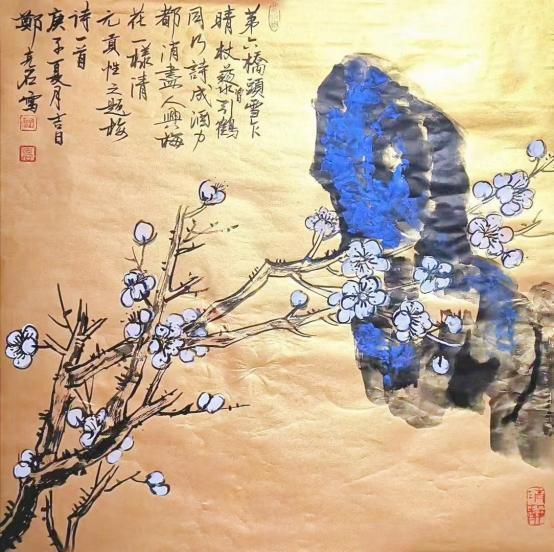 第六橋頭雪乍
晴杖藜曾引鶴
同行詩成酒力
都消盡人與梅
花一樣清
元貢性之題梅
詩一首
庚子夏月吉日
鄭石寫
清靜